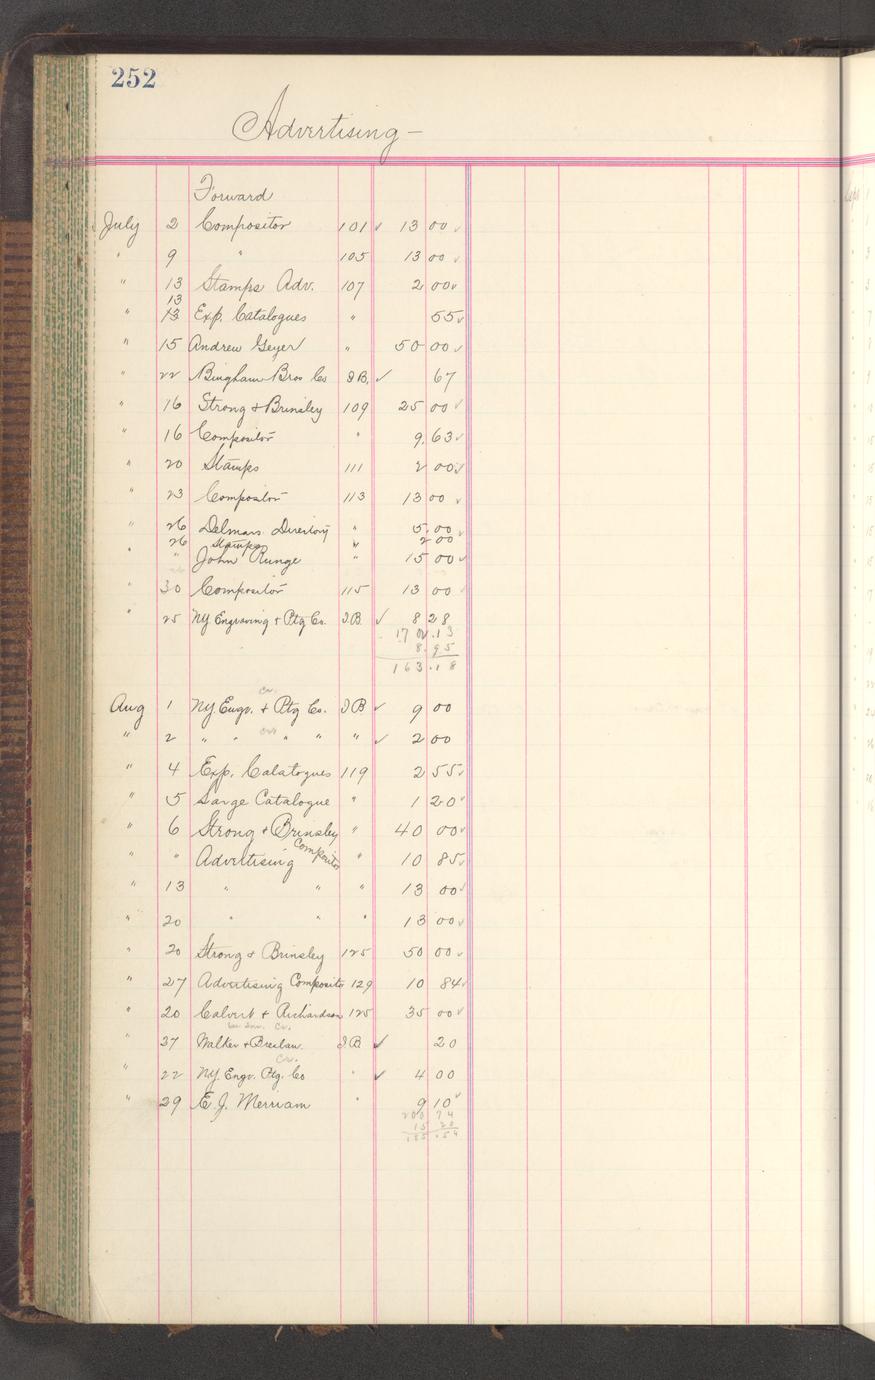 252
Advertising —
Forward
July 2 Compositor 101 ✓ 13 00 ✓
" 9 " 105 13 00 ✓
" 13 Stamps Adv. 107 2 00 ✓
13
" 13 Exp. Catalogues " 55 ✓
" 15 Andrew Geyer " 50 00 ✓
" 22 Bingham Bros Co I B. ✓ 67
" 16 Strong & Brinsley 109 25 00 ✓
" 16 Compositor " 9.63 ✓
" 20 Stamps 111 2 00 ✓
" 23 Compositor 113 13 00 ✓
" 26 Delmars. Directory " 5.00 ✓
26 Stamps " 2 00
" " John Runge " 15 00 ✓
" 30 Compositor 115 13 00 ✓
" 25 NY Engraving & Ptg Co. I.B. ✓ 8 28
.13
8.95
163.18
Cr.
Aug 1 NY Engv. & Ptg Co. I B ✓ 9 00
Cr.
" 2 " " " " " ✓ 2 00
" 4 Exp. Calatogues 119 2 55 ✓
" 5 Large Catalogue " 1 20 ✓
" 6 Strong & Brinsley " 40 00 ✓
" " Advertising Compositor " 10 85 ✓
" 13 " " " 13 00 ✓
" 20 " " " 13 00 ✓
" 20 Strong & Brinsley 125 50 00 ✓
" 27 Advertising Composito 129 10 84 ✓
" 20 Calvert & Richardson 125 35 00 ✓
Cr.
" 27 Walker & Breslau. I.B. ✓ 20
Cr.
" 22 NY. Engv. Ptg. Co " ✓ 4 00
" 29 E. J. Merriam " 9 10 ✓
200 74
15 20
185.54